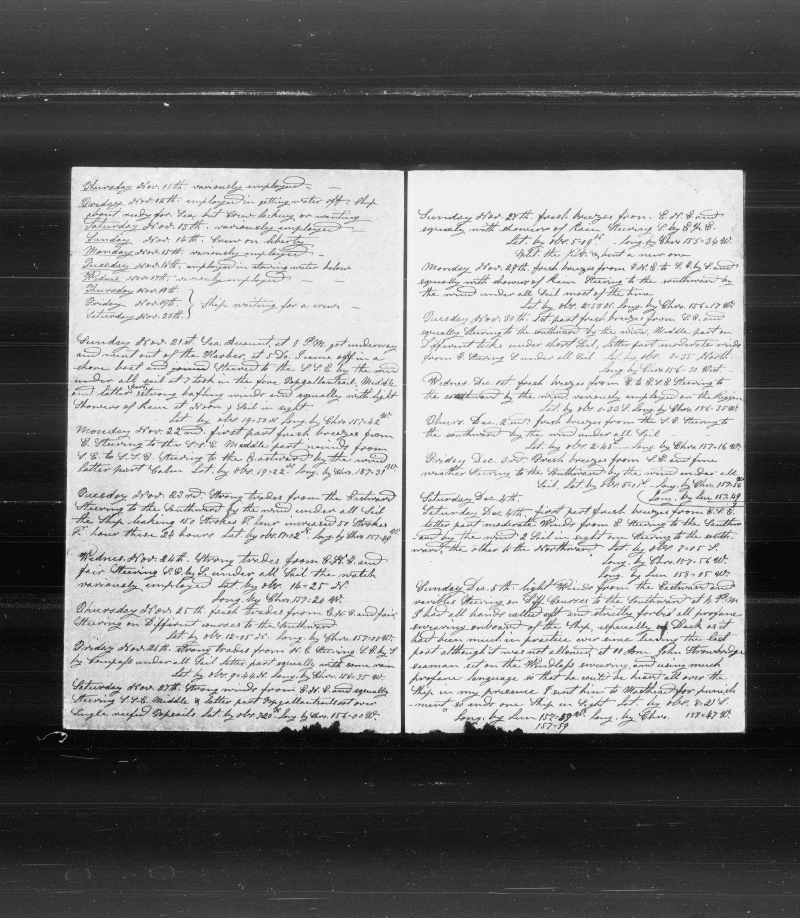 Thursday Nov. 11th. variously employed
Fridayy Nov. 12th. employed in getting water off. Ship
about ready for Sea but Crew lacking or wanting
Saturday Nov. 13th. variously employed
Sunday Nov. 14th. Crew on liberty
Monday Nov. 15th variously employed
Tuesday Nov. 16th. employed in stowing water below
Wednes Nov. 17th. variously employed
Thursday Nov. 18th.
Friday Nov. 19th. Ship waiting for a crew
Saturday Nov. 20th.
Sunday Nov. 21st. Sea Account, at 1 P.M. got underway
and went out of the Harbor, at 5 Do. I came off in a
shore boat and Steered to the S.S.E. by the wind
under all sail at 7 took in the fore Topgallantsail, Middle
and latter part strong baffling winds and squally with light
Showers of Rain at Noon 1 Sail in sight
Lat. by obs. 19=50 N. long. by Chro. 157=42 W.
Monday Nov. 22nd. first part fresh breezes from
E. Steering to the S.S.E. Middle part winds from
S.E. to S.S.E. Steering to the Eastward by the wind
latter part Calm Lat. by obs. 19=22 long. by Chro. 157=31 W.
Tuesday Nov. 23rd. Strong trades from the Eastward
Steering to the Southward by the wind under all Sail
the Ship leaking 150 Strokes Pr. hour increased 50 Strokes
Pr. hour these 24 hours Lat. by obs. 17=02 N. long. by Chro. 157=49 W.
Wednes. Nov. 24th. Strong trades from E.N.E. and
fair Steering S.E. by S. under all Sail the watch
variously employed Lat. by obs. 14=25 N
long. by Chro. 157=20 W.
Thursday Nov. 25th fresh trades from E.N.E. and fair,
Steering on Different courses to the Southward
Lat. by obs. 12=05 N. long. by Chro. 157=00 W.
Friday Nov. 26th. strong trades from N.E. Steering S.E. by S
by Compass under all Sail latter part squally with some rain
Lat. by obs. 9=44 N. long. by Chro. 156=35 W.
Saturday Nov. 27th. Strong winds from E.N.E. and squally
Steering S.S.E. Middle & latter part Topgallantsails set over
Single reefed Topsails Lat. by obs. 7=20 N. long. by Chro. 156=00 W.
Sunday Nov. 28th fresh breezes from E.N.E. and
squally with showers of Rain Steering S. by E. ½ E.
Lat. by obs. 5=19 N. long. by Chro. 155=34 W.
Split the Jib & bent a new one
Monday Nov. 29th. fresh breezes from E.N.E. to S.E. by S. and
squally with showers of Rain Steering to the southward by
the wind under all Sail most of the time
Lat. by obs. 2=50 N. long. by Chro. 156=17 W.
Tuesday Nov. 30th. 1st. part fresh breezes from S.E. and
squally Steering to the southward by the wind, Middle part on
Different tacks under short Sail, latter part moderate winds
from E. Steering S. under all Sail Lat. by obs. 0=35 North.
long. by Chro. 156=30 West.
Wednes. Dec. 1st. fresh breezes from E. to E.S.E Steering to
the southward by the wind, variously employed on the Rigging
Lat. by obs. 0=03 S. long. by Chro. 156=35 W.
Thurs. Dec. 2nd. fresh breezes from the S.E. Steering to
the southward by the wind under all Sail
Lat. by obs. 2=45 long. by Chro. 157=16 W.
Friday Dec. 3rd. Fresh breezes from S.E. and fine
weather Steering to the Southward by the wind under all
Sail. Lat. by obs. 5=01 long. by Chro. 157=56 W.
Saturday Dec. 4th. long. by Lun 157=49
Saturday Dec. 4th, first part fresh breezes from E.S.E.
latter part moderate Winds from E Steering to the Southw
ard by the wind 2 Sail in sight one Steering to the south-
ward the other to the Northward. Lat. by obs. 7=05 S.
long. by Chro. 157=56 W.
long. by Lun 158=05 W.
Sunday Dec. 5th. light Winds from the Eastward and
varibles Steering on Diff. Courses to the Southward at 4 P.M.
I had all hands called aft and strictly forbid all profane
swearing onboard of the Ship, especially on Deck as it
had been much in practice ever since leaving the last
port although it was not allowed, at 11 Am. John
seaman set on the Windlass swearing and using much
profane language so that he could be heart all over the
Ship in my presence I sent him to Masthead for punish-
ment so ends one Ship in Sight Lat. by obs. 8=21 S.
long. by Lun 157=59 W. long. by Chro. 157=47 W.
157=59